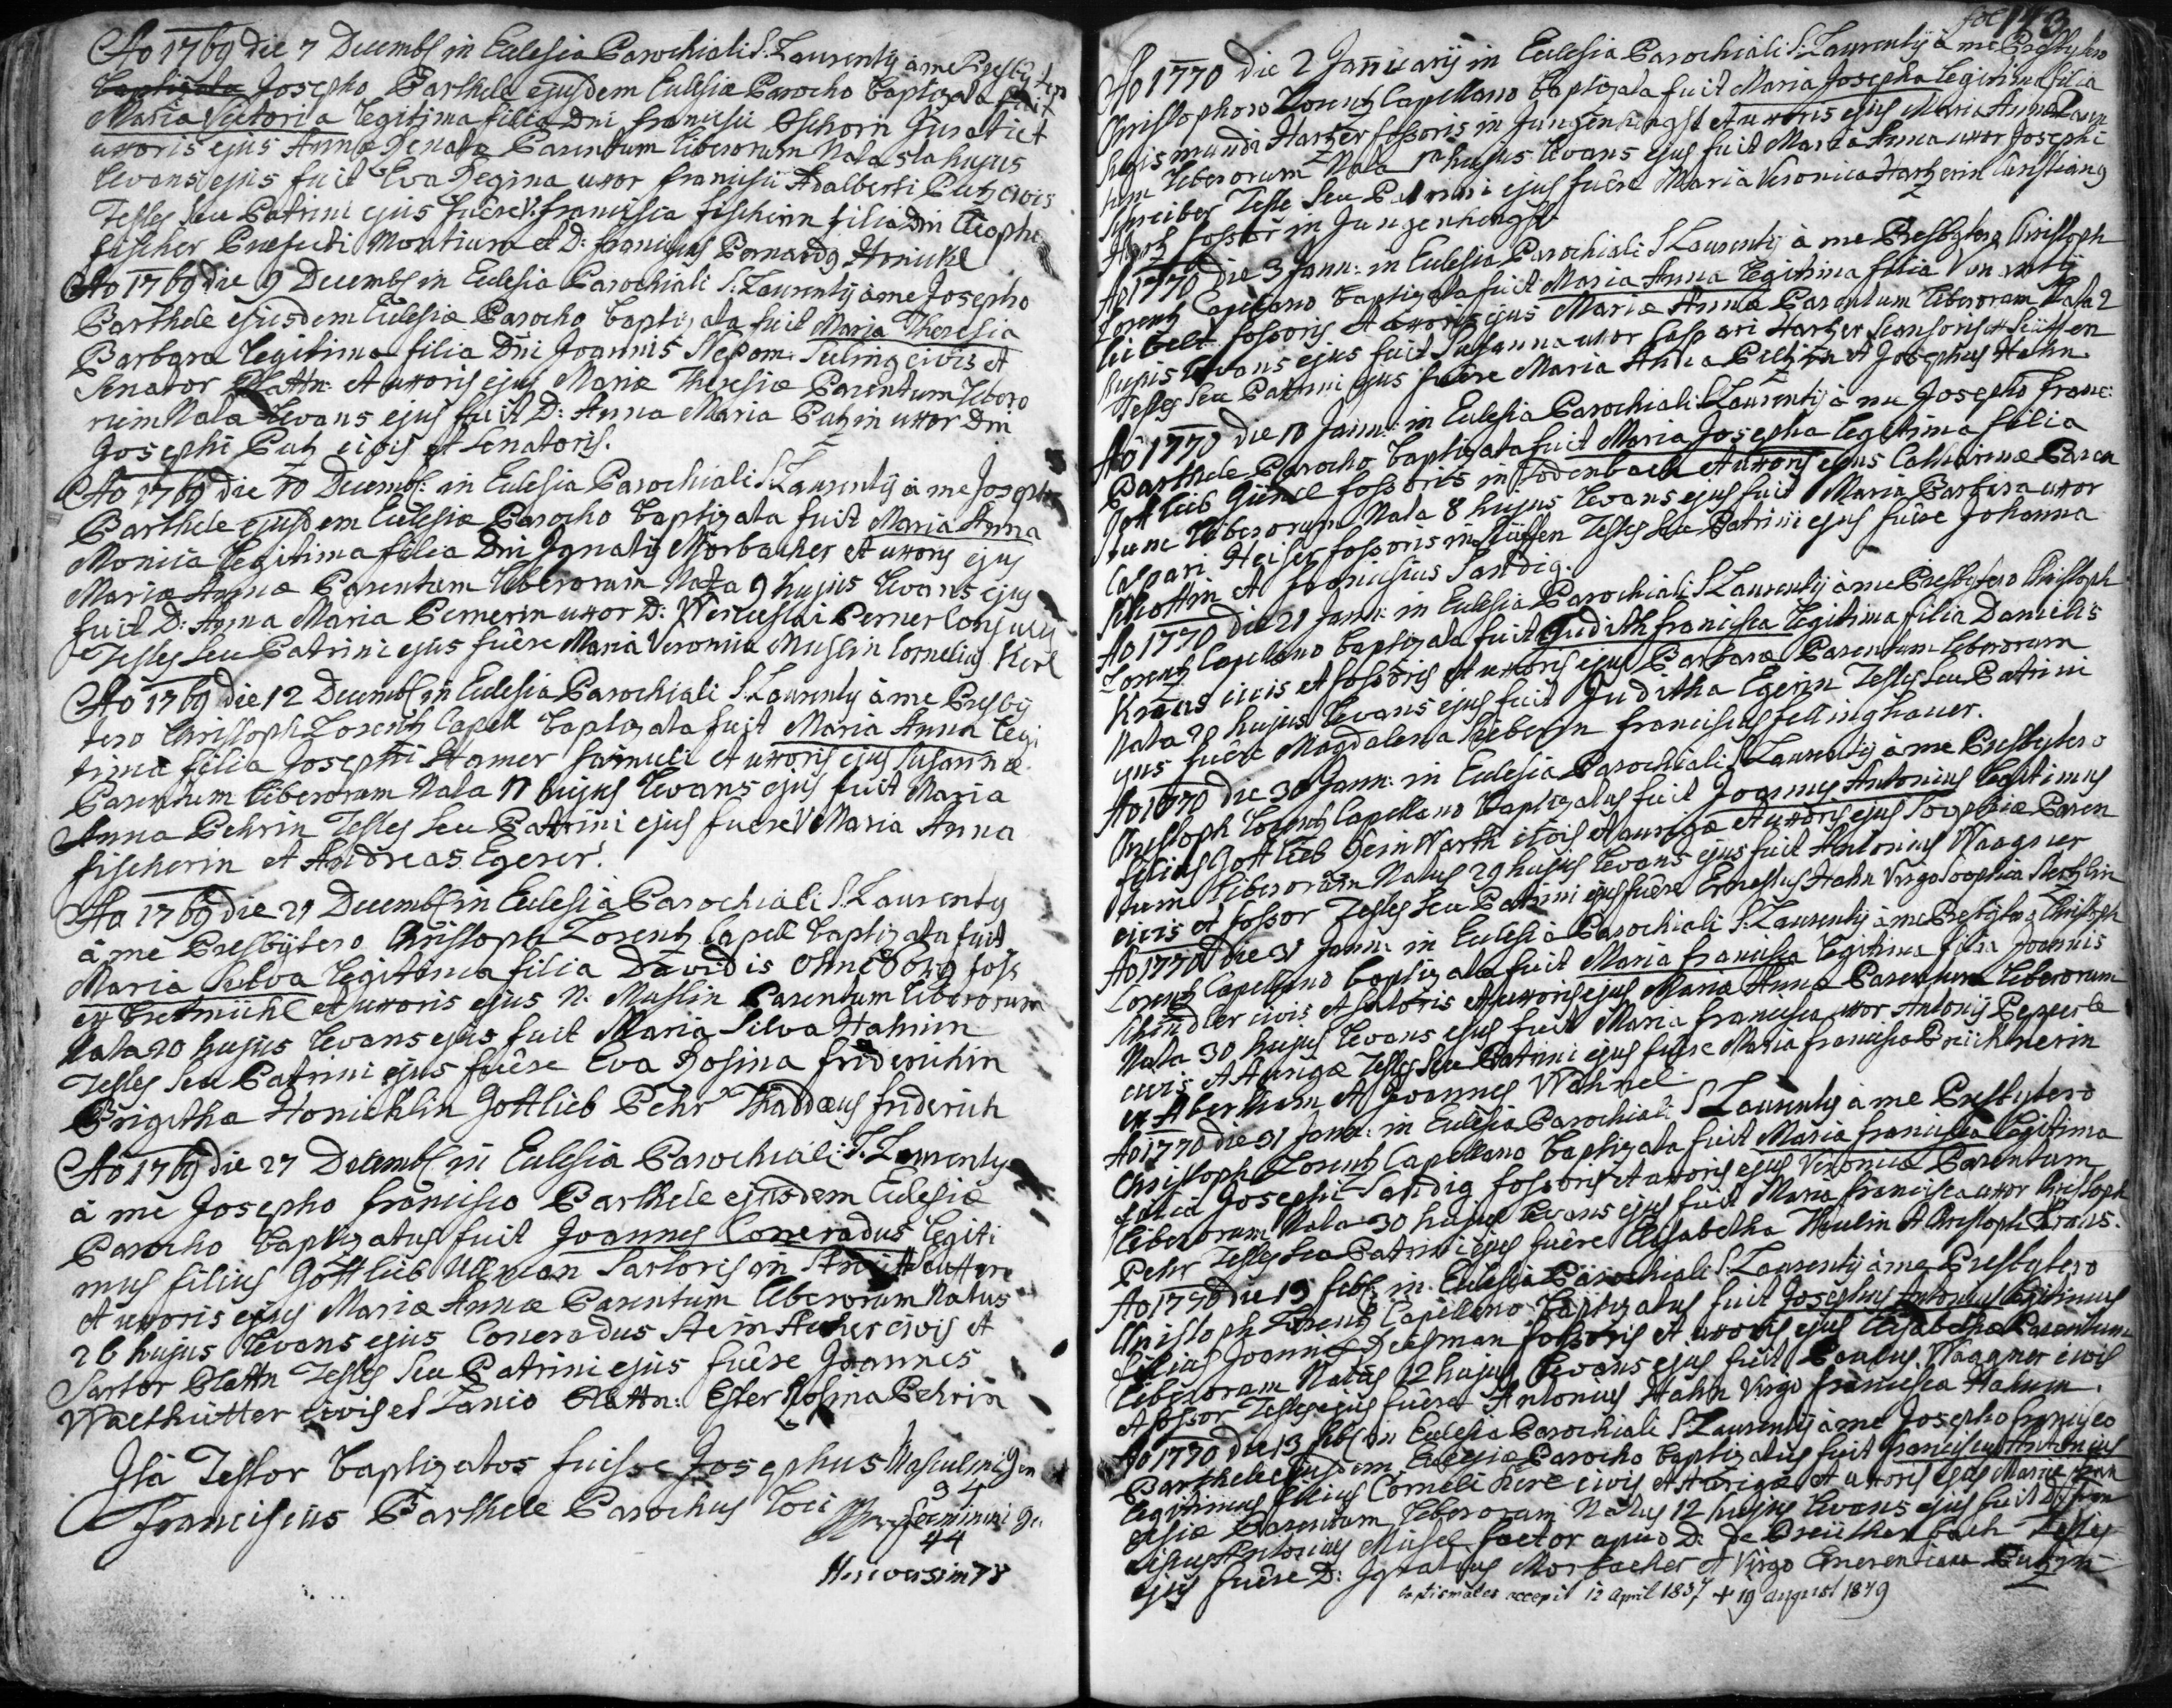 Ao 1769 die 7 Decembr in Eclesia Parochiali S: Laurentij à me Presbytero
baptizata Josepho Barthele ejusdem Eclesiæ Parocho baptizata fuit
Maria Victoria legitima filia Dni Francisci Juratj et
uxoris ejus Annæ Renata Parentum liberorum Nata sta hujus
levans ejus fuit Eva Regina uxor Francisci Adalberti Putz civis
Testes seu Patrini ejus fuêre V: Francisca Fischerin filia Dni Cleophe
Fischer Præfecti Montium et D: Franciscus Bernardg Heinickl
Ao 1769 die 9 Decembr in Eclesia Parochiali S: Laurentij à me Josepho
Barthele ejusdem Eclesiæ Parocho baptizata fuit Maria Theresia
Barbara legitima filia Dni Joannis Nepom: civis et
Senator Plattn: et uxoris ejus Mariæ Theresiæ Parentum libero
rum Nata levans ejus fuit D: Anna Maria Putzin uxor Dni
Josephi Putz civis et Senatoris.
Ao 1769 die 10 Decembr: in Eclesia Parochiali S: Laurentij à me Josepho
Barthele ejusdem Eclesiæ Parocho baptizata fuit Maria Anna
Monica legitima filia Dni Ignatij Morbacher et uxoris ejus
Mariæ Annæ Parentum liberorum Nata 9 hujus levans ejus
fuit D: Anna Maria Pernerin uxor D: Wenceslai Perner
Testes seu Patrini ejus fuêre Maria Veronica Muslin Cornelius Kerl
Ao 1769 die 12 Decembr in Eclesia Parochiali S: Laurentij à me Presby
tero Christoph Lorentz Capell baptizata fuit Maria Anna legi
tima filia Josephi Hamer famuli et uxoris ejus Susannæ
Parentum liberorum Nata 11 hujus levans ejus fuit Maria
Anna Pehrin Testes seu Patrini ejus fuere V Maria Anna
Fischerin et Andreas Egerer.
Ao 1769 die 21 Decembr in Eclesia Parochiali S: Laurentij
à me Presbÿtero Christoph Lorentz Capell baptizata fuit
Maria Silva legitima filia Davidis Ohnesorg foss
ex Bretmühl et uxoris ejus N: Muslin Parentum liberorum
Nata 20 hujus levans ejus fuit Maria Silva Hahnin
Testes seu Patrini ejus fuêre Eva Rosina Friderichin
Brigitha Honicklin Gottlieb Pehr Thaddæus Friderich
Ao 1769 die 27 Decembr in Eclesia Parochiali S: Laurentij
à me Josepho Francisco Barthele ejusdem Eclesiæ
Parocho baptizatus fuit Joannes Conradus legiti
mus filius Gottlieb Ullman Sartoris in
et uxoris ejus Mariæ Annæ Parentum liberorum Natus
26 hujus levans ejus Conradus civis et
Sartor Plattn Testes seu Patrini ejus fuêre Joannes
Walthütter civis et Lanio Plattn: Ester Rosina Pehrin
Ita Testor baptizatos fuisse Josephus Masculini Gen
34
Franciscus Barthele Parochus loci Fœminini Ge
44
78
fol 143
Ao 1770 die 2 Januarij in Eclesia Parochiali S: Laurentij à me Presbytero
Christophoro Lorentz Capellano baptizata fuit Maria Josepha legitima filia
Sigismundi Hartzer fossoris in Jungenhengst et uxoris ejus Maria Anna Paren
tum liberorum Nata hujus levans ejus fuit Maria Anna uxor Josephi
Schreiber Teste seu Patrini ejus fuêre Maria Veronica Hartzerin Christiang
fossor in Jungenhengst
Ao 1770 die 3 Jann: in Eclesia Parochiali S Laurentij à me Presbytero Christoph
Lorentz Capellano baptizata fuit Maria Anna legitima filia
fossoris et uxoris ejus Mariæ Annæ Parentum liberorum Nata 2
hujus levans ejus fuit Susanna uxor Caspari Hartzer
Testes seu Patrini ejus fuêre Maria Anna Putzin et Josephus Hahn
Ao 1770 die 10 Jann: in Eclesia Parochiali S Laurentij à me Josepho Franc:
Barthele Parocho baptizata fuit Maria Josepha legitima filia
Gottlieb Günel fossoris in et uxoris ejus Catharinæ Paren
tum liberorum Nata 8 hujus levans ejus fuit Maria Barbara uxor
Caspari Heiser fossoris in Testes seu Patrini ejus fuêre Johanna
Schottin et Franciscus Sandig.
Ao 1770 die 21 Jann: in Eclesia Parochiali S Laurentij à me Presbytero Christoph
Lorentz Capellano baptizata fuit Judith Francisca legitima filia Danielis
Kraus civis et fossoris et uxoris ejus Barbaræ Parentum liberorum
Nata 20 hujus levans ejus fuit Juditha Egerin Testes seu Patrini
ejus fuêre Magdalena Franciscus Fellinghauer.
Ao 1770 die 30 Jann: in Eclesia Parochiali S Laurentij à me Presbytero
Christoph Lorentz Capellano baptizatus fuit Joannes Antonius legitimus
filius Gottlieb civis et aurigæ et uxoris ejus Sophiæ Paren
tum liberorum Natus 29 hujus levans ejus fuit Antonius Waagner
civis et fossor Testes seu Patrini ejus fuêre Ernestus Hahn Virgo Sophia
Ao 1770 die 31 Jann: in Eclesia Parochiali S: Laurentij à me Presbytero Christoph
Lorentz Capellano baptizata fuit Maria Francisca legitima filia Joannis
Schindler civis et sutoris et uxoris ejus Mariæ Annæ Parentum liberorum
Nata 30 hujus levans ejus fuit Maria Francisca uxor Antonij
civis et Aurigæ Testes seu Patrini ejus fuêre Maria Francisca
ex Abertham et Joannes Wehnel.
Ao 1770 die 31 Jann: in Eclesia Parochiali S Laurentij à me Presbytero
Christoph Lorentz Capellano baptizata fuit Maria Francisca legitima
filia Josephi Sandig fossoris et uxoris ejus Veronicæ Parentum
liberorum Nata 30 hujus levans ejus fuit Maria Francisca uxor Christoph
Pehr Testes seu Patrini ejus fuêre Elisabetha et Christoph Kraus.
Ao 1770 die 13 Febr in Eclesia Parochiali S: Laurentij à me Presbytero
Christoph Lorentz Capellano baptizatus fuit Josephus Antonius legitimus
filius Joannis fossoris et uxoris ejus Elisabetha Parentum
liberorum Natus 12 hujus levans ejus fuit Paulus Waggner civis
et fossor Testes ejus fuêre Antonius Hahn Virgo Francisca Hahnin.
Ao 1770 die 13 Febr in Eclesia Parochiali S: Laurentij à me Josepho Francisco
Barthele ejusdem Eclesiæ Parocho baptizatus fuit Franciscus Antonius
legitimus filius Corneli Kerl civis et Aurigæ et uxoris ejus Mariæ
Parentum liberorum Natus 12 hujus levans ejus fuit D: Fran
ciscus Antonius factor apud D: Testes
ejus fuêre D: Ignatius Morbacher et Virgo Emerentiana Putzin
baptismales accepit 12 April 1837 + 19 August 1849